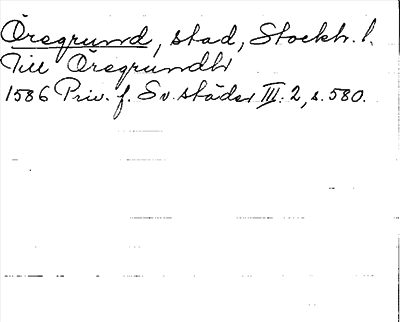 Öregrund, stad, Stockh. l.
Till Öregrundh
1586 Priv. f. Sv. städer III: 2, s. 580.